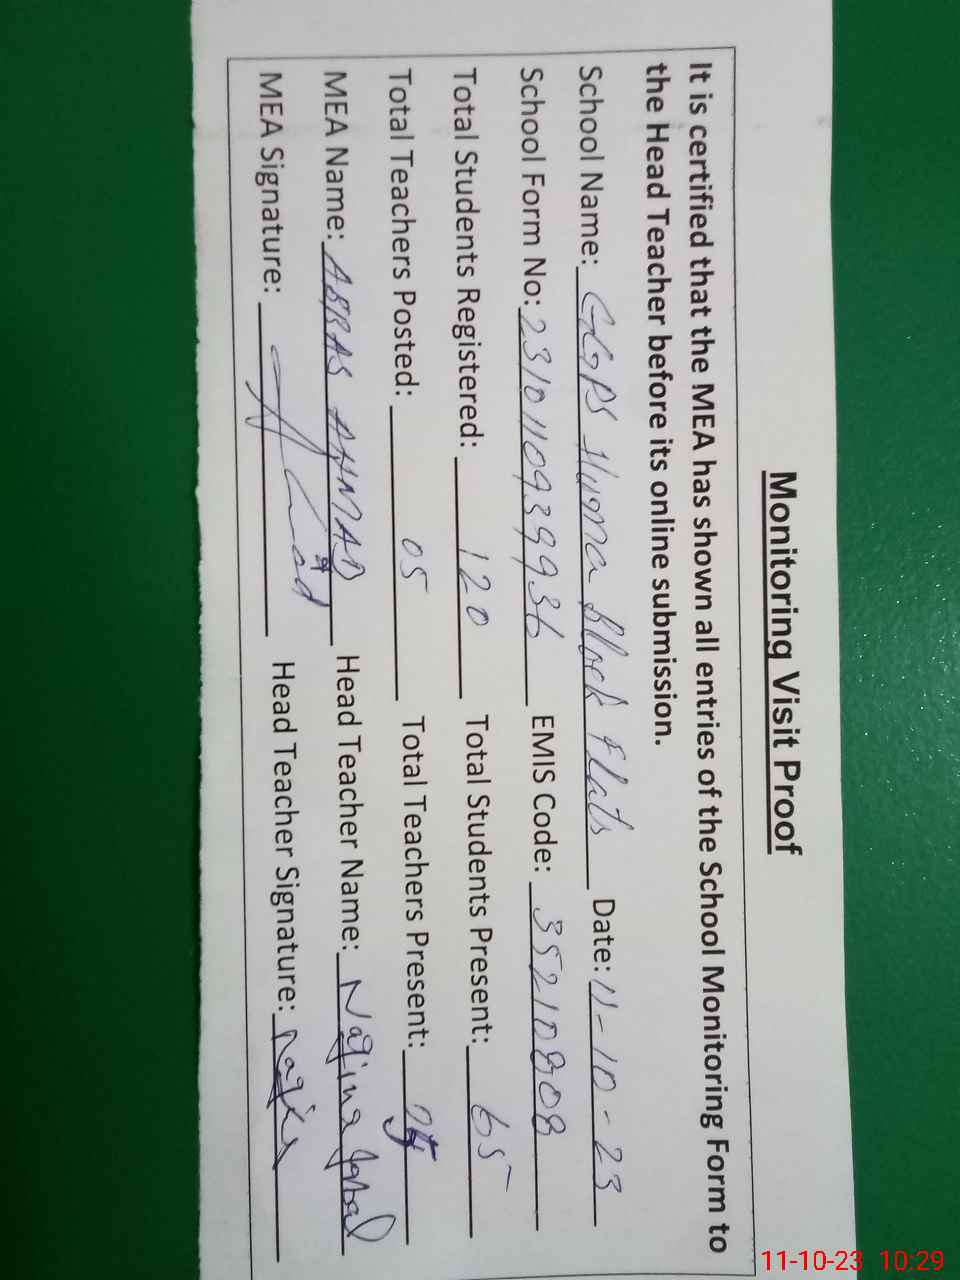 Monitoring Visit Proof
It is certified that the MEA has shown all entries of the School Monitoring Form to
the Head Teacher before its online submission.
School Name: GGPS Huma Block Flats Date: 11-10-23
School Form No: 23101109399936 EMIS Code: 35210808
Total Students Registered: 120 Total Students Present: 65
Total Teachers Posted: 05 Total Teachers Present: 04
MEA Name: ABBAS AHMAD Head Teacher Name: Nagina Iqbal
MEA Signature: Head Teacher Signature:
11-10-23 10:29